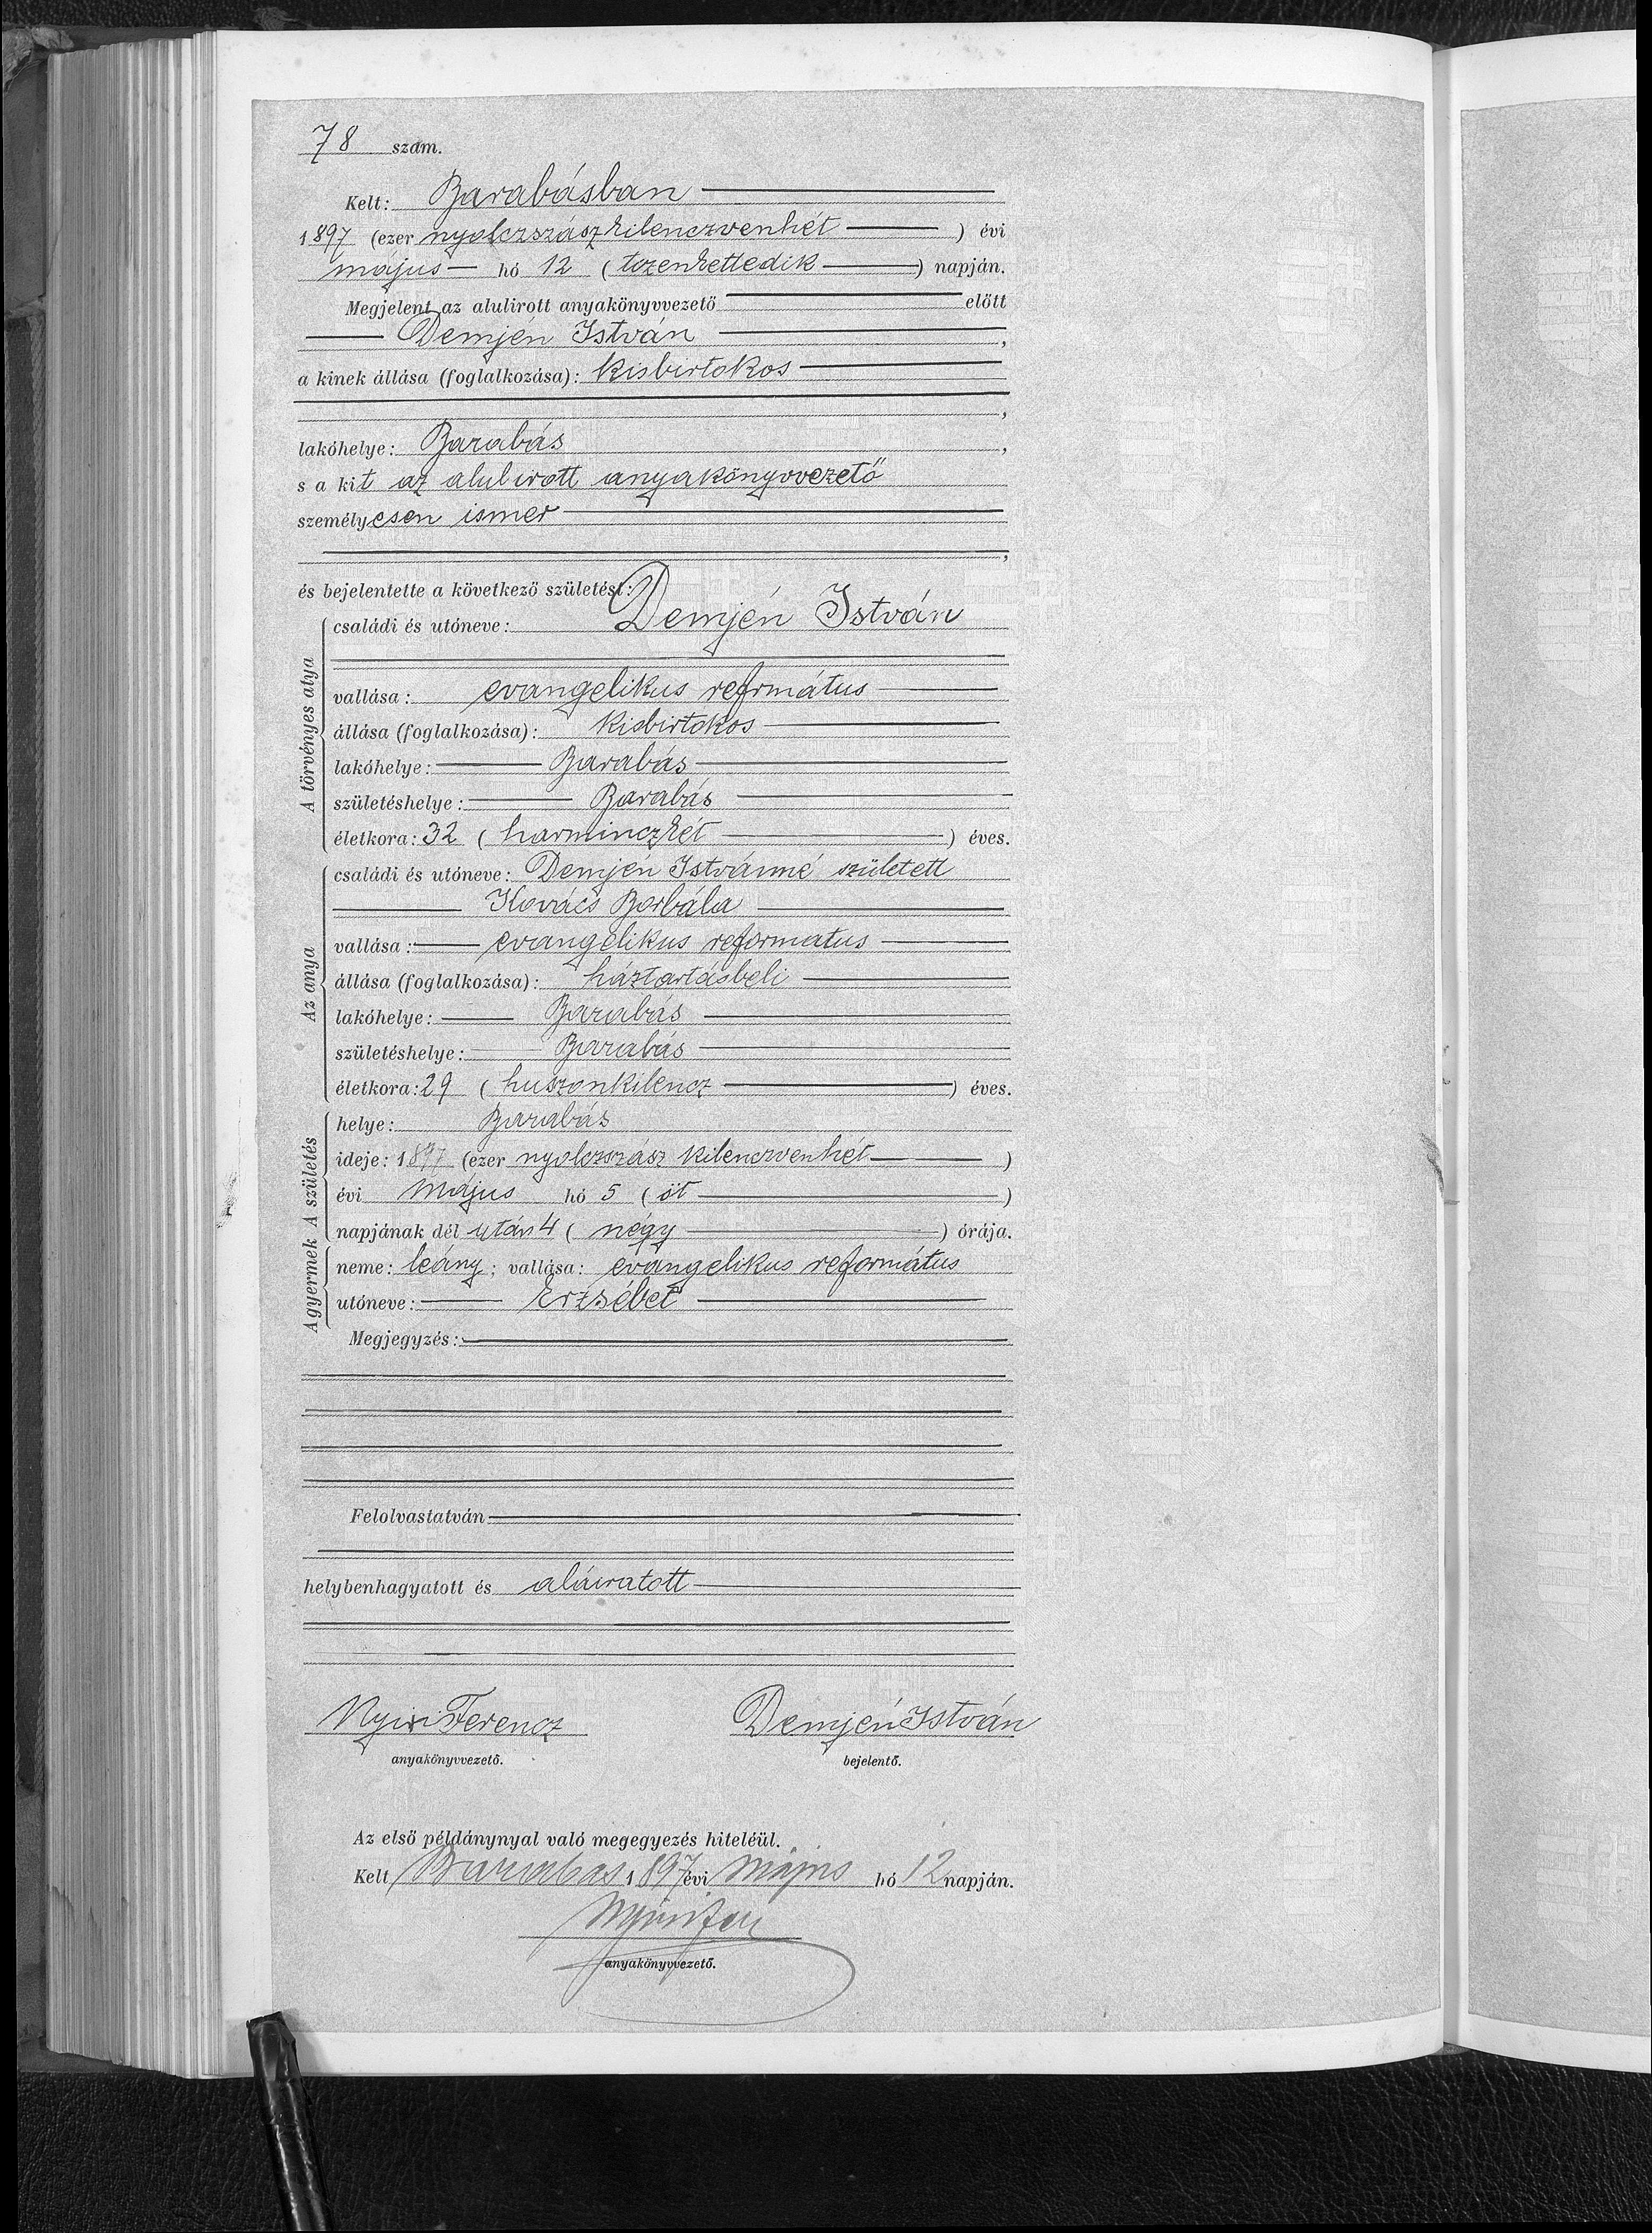 78 szám.
Kelt: Barabásban
1897 (ezer nyolczszász kilenczvenhét) évi
május hó 12 (tizenkettedik) napján.
Megjelent az alulirott anyakönyvvezető előtt
Demjén István,
a kinek állása (foglalkozása): kisbirtokos
,
lakóhelye: Barabás,
s a kit az alulirott anyakönyvvezető
személyesen ismer
,
és bejelentette a következő születést:
A törvényes atya
családi és utóneve: Demjén István
vallása: evangelikus refrmátus
állása (foglalkozása): kisbirtokos
lakóhelye: Barabás
születéshelye: Barabás
életkora: 32 (harminczkét) éves.
Az anya
családi és utóneve: Demjén Istvánné született
Kovács Borbála
vallása: evangelikus reformatus
állása (foglalkozása): háztartásbeli
lakóhelye: Barabás
születéshelye: Barabás
életkora: 29 (huszonkilencz) éves.
A születés
helye: Barabás
ideje: 1897 (ezer nyolczszász kilenczvenhét)
évi május hó 5 (öt)
napjának dél után 4 (négy) órája.
A gyermek
neme: leány; vallása: evangelikus református
utóneve: Erzsébet
Megjegyzés:
Felolvastatván
helybenhagyatott és aláiratott
Nyiri Ferencz Demjén István
anyakönyvvezető. bejelentő.
Az első példánynyal való megegyezés hiteléül.
Kelt Barabas 1897 évi május hó 12 napján.
anyakönyvvezető.